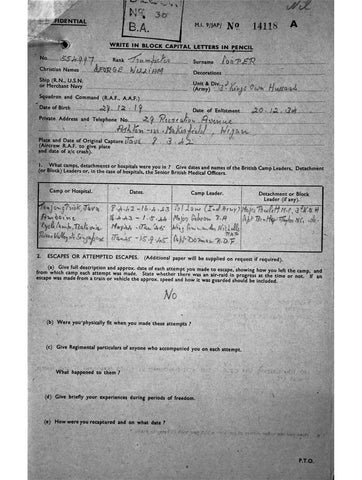 Nº 30
B.A.
Nil
CONFIDENTIAL
M.I. 9/JAP/ Nº 14118 A
WRITE IN BLOCK CAPITAL LETTERS IN PENCIL
No. Rank Trumpeter Surname
Christian Names GEORGE WILLIAM Decorations
Ship (R.N., U.S.N. or Merchant Navy) Unit & Div., (Army) 3rd Kings Own Hussars
Squadron and Command (R.A.F., A.A.F.)
Date of Birth 29.12.19 Date of Enlistment 20.12.34
Private Address and Telephone No. 29 Recreation Avenue
Ashton-in-Makerfield, Wigan
Place and Date of Original Capture Java 8.3.42
(Aircrew R.A.F. to give place and date of a/c crash).
1. What camps, detachments or hospitals were you in ? Give dates and names of the British Camp Leaders, Detachment
(or Block) Leaders or, in the case of hospitals, the Senior British Medical Officers.
Camp or Hospital. Dates. Camp Leader. Detachment or Block Leader (if any).
Tanjong Priok, Java
Singapore Capt
2. ESCAPES OR ATTEMPTED ESCAPES. (Additional paper will be supplied on request if required).
(a) Give full description and approx. date of each attempt you made to escape, showing how you left the camp, and
from which camp each attempt was made. State whether there was an air-raid in progress at the time or not. If an
escape was made from a train or vehicle the approx. speed and how it was guarded should be included.
No
(b) Were you physically fit when you made these attempts ?
(c) Give Regimental particulars of anyone who accompanied you on each attempt.
What happened to them ?
(d) Give briefly your experiences during periods of freedom.
(e) How were you recaptured and on what date ?
P.T.O.